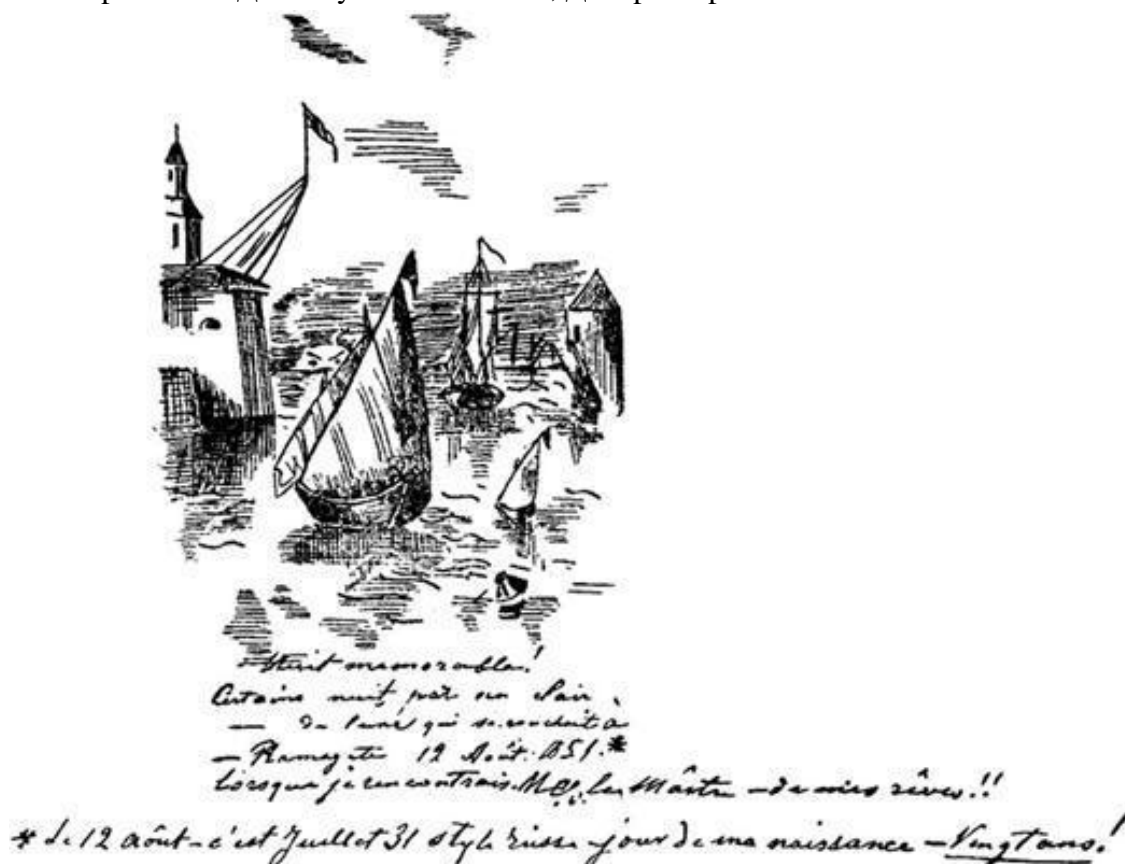 Nuit memorable!
Certaine nuit par un clair
— de lune qui se couchait à
— Ramsgate 12 Août 1851.*
lorsque je rencontrais M le Maître — de mes rêves!!
* Le 12 août - c'est Juillet 31 style russe jour de ma naissance — Vingt ans!